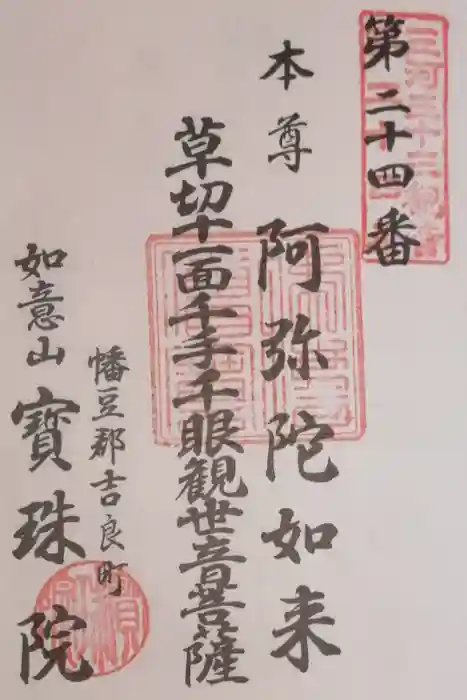 第二十四番
三河三十三観音
本尊 阿弥陀如来
草切十一面千手千眼観世音菩薩
幡豆郡吉良町
如意山 寳珠院